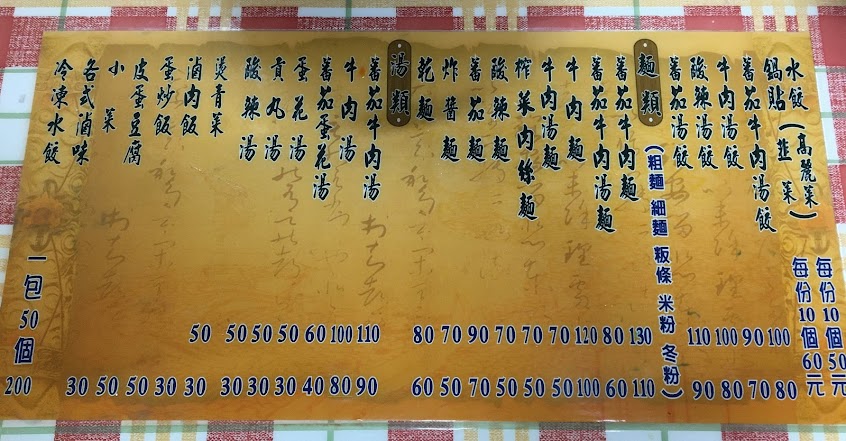 水餃(高麗菜)
鍋貼(韭菜)
蕃茄牛肉湯餃
牛肉湯餃
酸辣湯餃
蕃茄湯餃
每份10個50元
每份10個60元
100 90 100 110
80 70 80 90
麵類
(粗麵 細麵 粄條 米粉 冬粉)
蕃茄牛肉麵
蕃茄牛肉湯麵
牛肉麵
牛肉湯麵
榨菜肉絲麵
酸辣麵
蕃茄麵
炸醬麵
乾麵
130 80 120 70 70 70 90 70 80
110 60 100 50 50 50 70 50 60
湯類
蕃茄牛肉湯
牛肉湯
蕃茄蛋花湯
蛋花湯
貢丸湯
酸辣湯
燙青菜
滷肉飯
蛋炒飯
皮蛋豆腐
小菜
各式滷味
冷凍水餃
110 100 60 50 50 50 50
90 80 40 30 30 30 30 30 50 50 30
一包50個
200